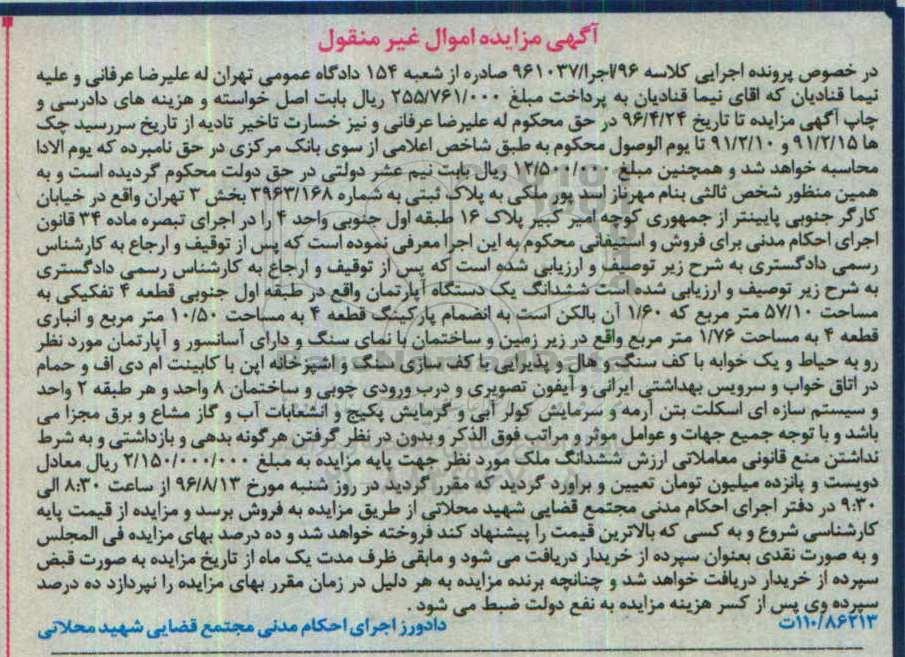 آگهی مزایده اموال غیر منقول
در خصوص پرونده اجرایی کلاسه ۹۶/اجرا/۹۶۱۰۳۷ صادره از شعبه ۱۵۴ دادگاه عمومی تهران له علیرضا عرفانی و علیه
نیما قنادیان که اقای نیما قنادیان به پرداخت مبلغ ۲۵۵/۷۶۱/۰۰۰ ریال بابت اصل خواسته و هزینه های دادرسی و
چاپ آگهی مزایده تا تاریخ ۹۶/۴/۲۴ در حق محکوم له علیرضا عرفانی و نیز خسارت تاخیر تادیه از تاریخ سررسید چک
ها ۹۱/۲/۱۵ و ۹۱/۲/۱۰ تا یوم الوصول محکوم به طبق شاخص اعلامی از سوی بانک مرکزی در حق نامبرده که یوم الادا
محاسبه خواهد شد و همچنین مبلغ ۱۲/۵۰۰/۰۰۰ ریال بابت نیم عشر دولتی در حق دولت محکوم گردیده است و به
همین منظور شخص ثالثی بنام مهرناز اسد پور ملکی به پلاک ثبتی به شماره ۳۹۶۳/۱۶۸ بخش ۳ تهران واقع در خیابان
کارگر جنوبی پایینتر از جمهوری کوچه امیر کبیر پلاک ۱۶ طبقه اول جنوبی واحد ۴ را در اجرای تبصره ماده ۳۴ قانون
اجرای احکام مدنی برای فروش و استیفانی محکوم به این اجرا معرفی نموده است که پس از توقیف و ارجاع به کارشناس
رسمی دادگستری به شرح زیر توصیف و ارزیابی شده است که پس از توقیف و ارجاع به کارشناس رسمی دادگستری
به شرح زیر توصیف و ارزیابی شده است ششدانگ یک دستگاه آپارتمان واقع در طبقه اول جنوبی قطعه ۴ تفکیکی به
مساحت ۵۷/۱۰ متر مربع که ۱/۶۰ آن بالکن است به انضمام پارکینگ قطعه ۴ به مساحت ۱۰/۵۰ متر مربع و انباری
قطعه ۴ به مساحت ۱/۷۶ متر مربع واقع در زیر زمین و ساختمان با نمای سنگ و دارای آسانسور و آپارتمان مورد نظر
رو به حیاط و یک خوابه با کف سنگ و هال و پذیرایی با کف سازی سنگ و اشپزخانه اپن با کابینت ام دی اف و حمام
در اتاق خواب و سرویس بهداشتی ایرانی و آیفون تصویری و درب ورودی چوبی و ساختمان ۸ واحد و هر طبقه ۲ واحد
و سیستم سازه ای اسکلت بتن آرمه و سرمایش کولر آبی و گرمایش پکیج و انشعابات آب و گاز مشاع و برق مجزا می
باشد و با توجه جمیع جهات و عوامل موثر و مراتب فوق الذکر و بدون در نظر گرفتن هرگونه بدهی و بازداشتی و به شرط
نداشتن منع قانونی معاملاتی ارزش ششدانگ ملک مورد نظر جهت پایه مزایده به مبلغ ۲/۱۵۰/۰۰۰/۰۰۰ ریال معادل
دویست و پانزده میلیون تومان تعیین و براورد گردید که مقرر گردید در روز شنبه مورخ ۹۶/۸/۱۳ از ساعت ۸:۳۰ الی
۹:۳۰ در دفتر اجرای احکام مدنی مجتمع قضایی شهید محلاتی از طریق مزایده به فروش برسد و مزایده از قیمت پایه
کارشناسی شروع و به کسی که بالاترین قیمت را پیشنهاد کند فروخته خواهد شد و ده درصد بهای مزایده فی المجلس
و به صورت نقدی بعنوان سپرده از خریدار دریافت می شود و مابقی ظرف مدت یک ماه از تاریخ مزایده به صورت قبض
سپرده از خریدار دریافت خواهد شد و چنانچه برنده مزایده به هر دلیل در زمان مقرر بهای مزایده را نپردازد ده درصد
سپرده وی پس از کسر هزینه مزایده به نفع دولت ضبط می شود .
۱۱۰/۸۶۲۱۳ت دادورز اجرای احکام مدنی مجتمع قضایی شهید محلاتی